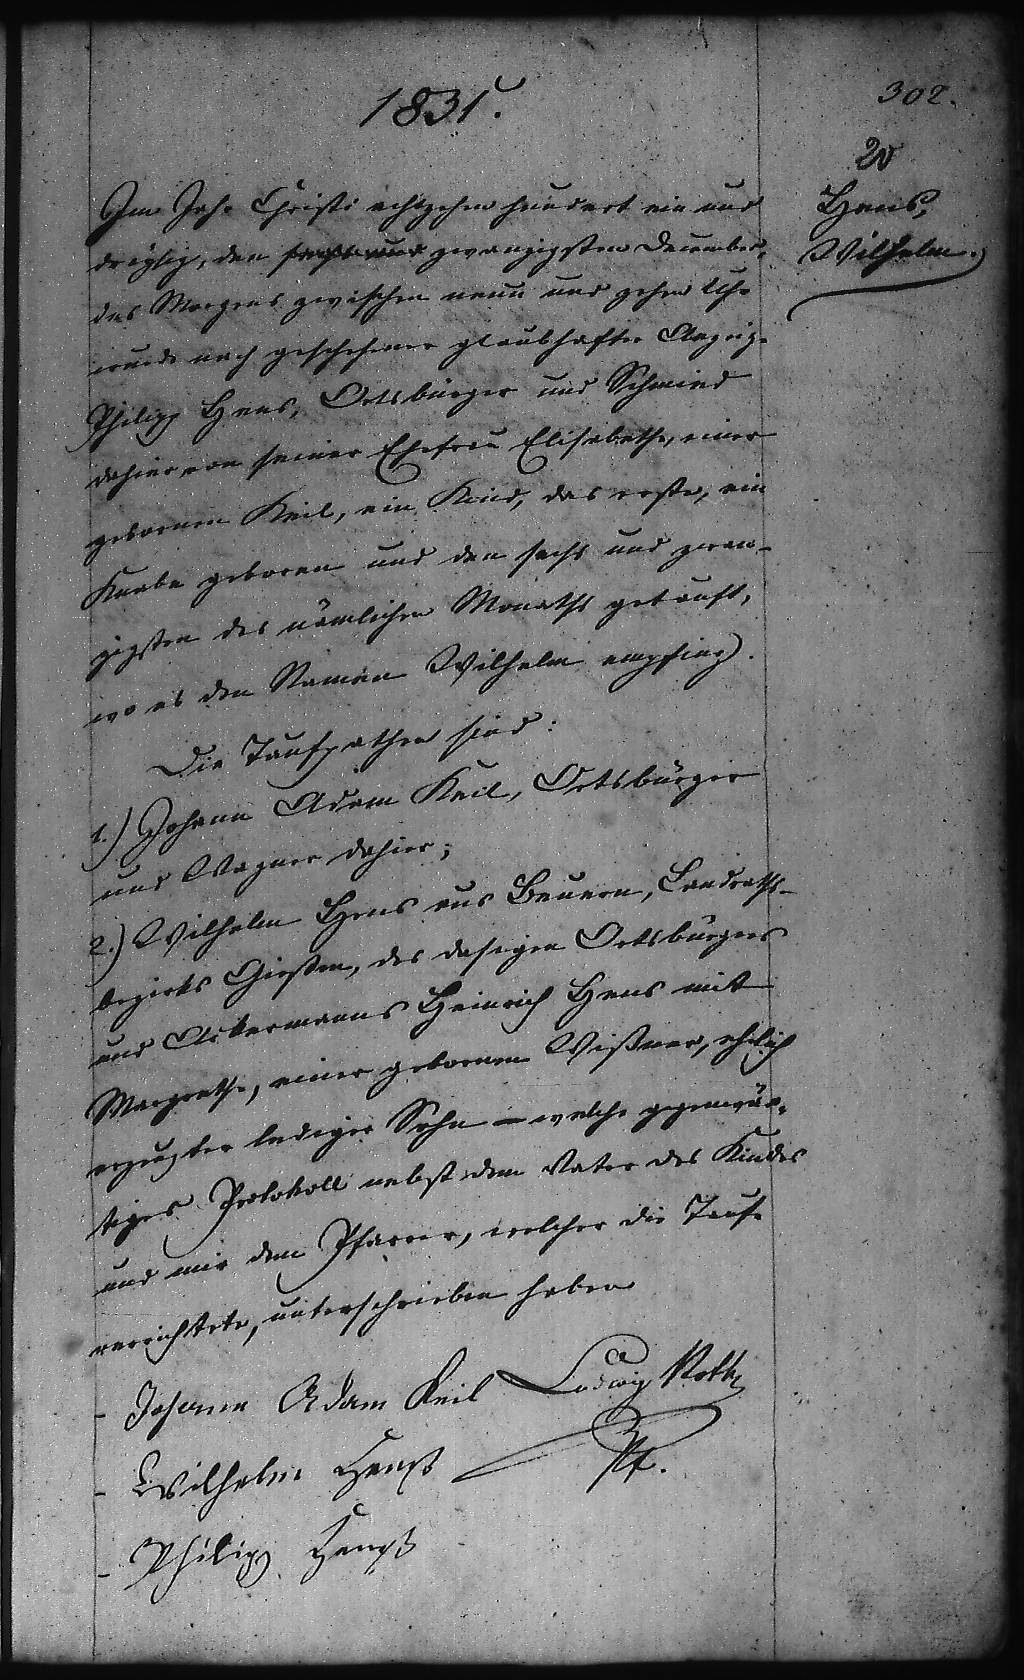 1831.
302.
20
Hens,
Wilhelm.
Im Jahr Christi achtzehn hundert ein und
dreyßig, den zwanzigsten December,
des Morgens zwischen neun und zehn Uhr
wurde nach geschehener glaubhafter Anzeige
Philipp Hens, Ortsbürger und Schmied
dahier von seiner Ehefrau Elisabetha, einer
gebornen Keil, ein Kind, das erste, ein
Knabe geboren und den sechs und zwan-
zigsten des nämlichen Monaths getauft,
wo es den Namen Wilhelm empfing.
Die Taufpathen sind:
1.) Johann Adam Keil, Ortsbürger
und Wagner dahier;
2.) Wilhelm Hens aus Beuern, Landraths-
bezirks Gießen, des dasigen Ortsbürgers
und Ackermanns Heinrich Hens mit
Margrethe, einer gebornen Wißner, ehelich
erzeugter lediger Sohn – welche gegenwär-
tiges Protokoll nebst dem Vater des Kindes
und mir dem Pfarrer, welcher die Taufe
verrichtete, unterschrieben haben
- Johann Adam Keil Ludwig Noth
- Wilhelm Henß Pf.
- Philipp Henß